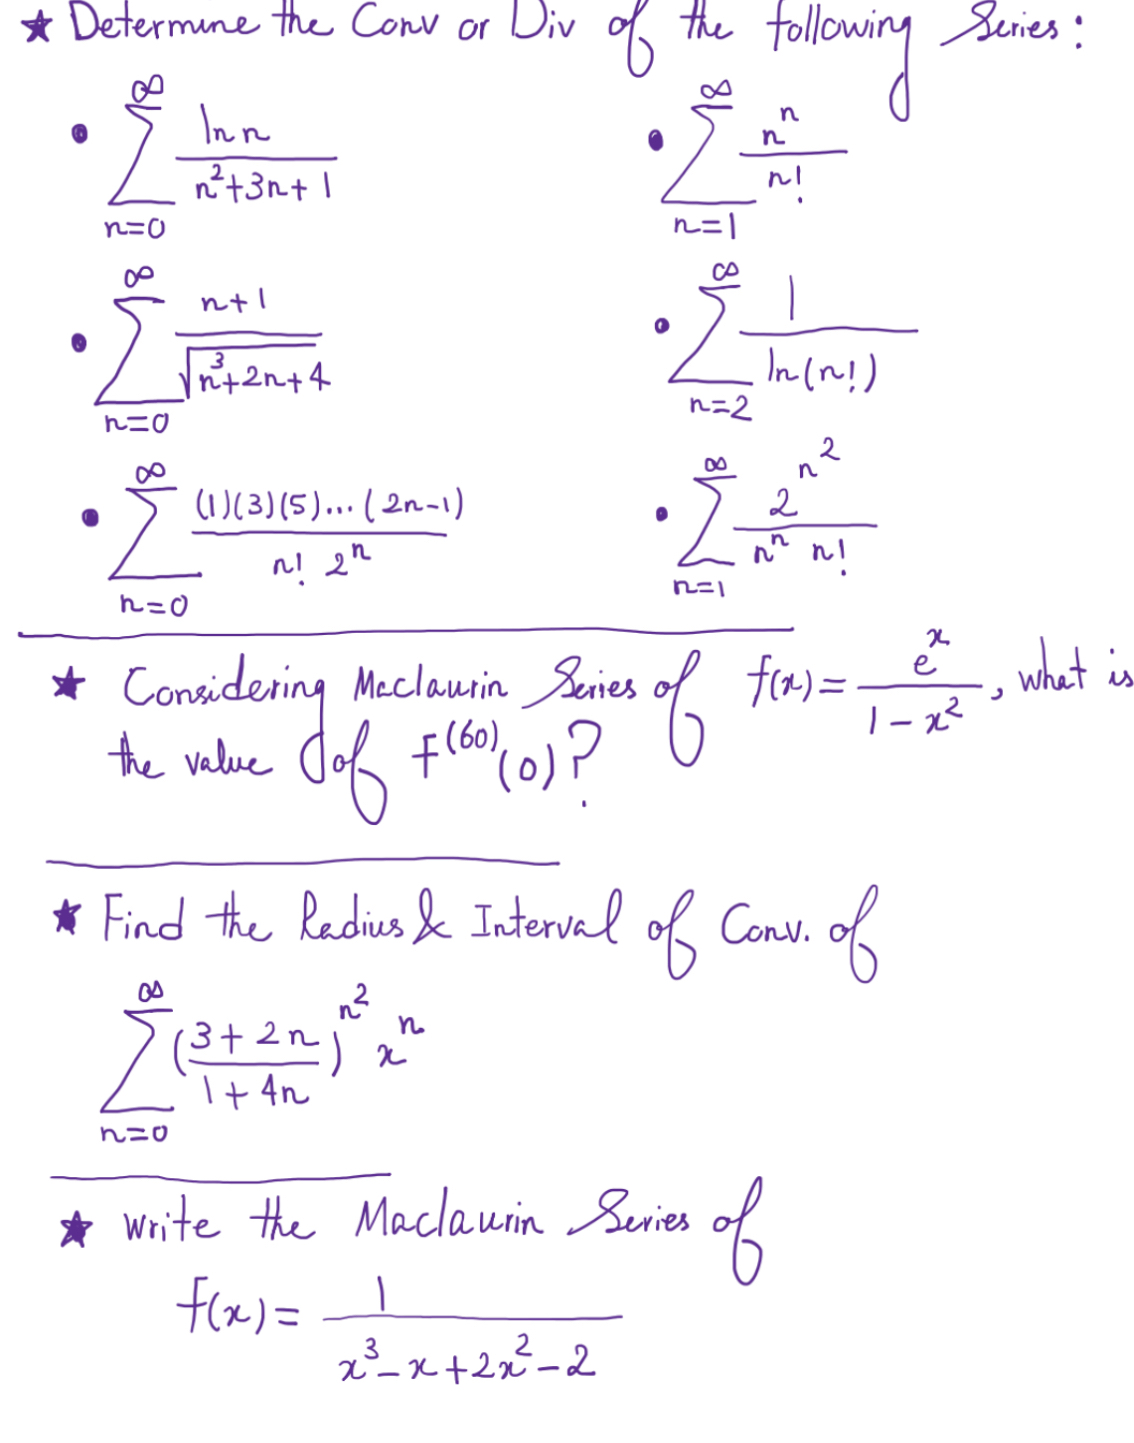 ★ Determine the Conv or Div of the following Series:
• \sum_{n=0}^{\infty} \frac{\ln n}{n^2+3n+1}
• \sum_{n=1}^{\infty} \frac{n^n}{n!}
• \sum_{n=0}^{\infty} \frac{n+1}{\sqrt{n^3+2n+4}}
• \sum_{n=2}^{\infty} \frac{1}{\ln(n!)}
• \sum_{n=0}^{\infty} \frac{(1)(3)(5)...(2n-1)}{n! 2^n}
• \sum_{n=1}^{\infty} \frac{2^{n^2}}{n^n n!}
★ Considering Maclaurin Series of f(x) = \frac{e^x}{1-x^2}, what is
the value of f^{(60)}(0)?
★ Find the Radius & Interval of Conv. of
\sum_{n=0}^{\infty} (\frac{3+2n}{1+4n})^{n^2} x^n
★ write the Maclaurin Series of
f(x) = \frac{1}{x^3-x+2x^2-2}